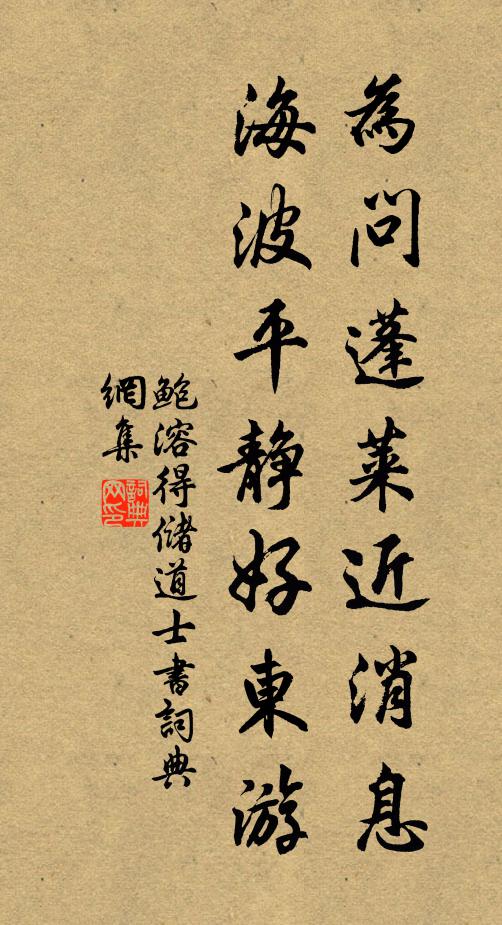 為問蓬萊近消息
海波平静好東游
鮑溶得儲道士書詞典
網集
詞典
网印